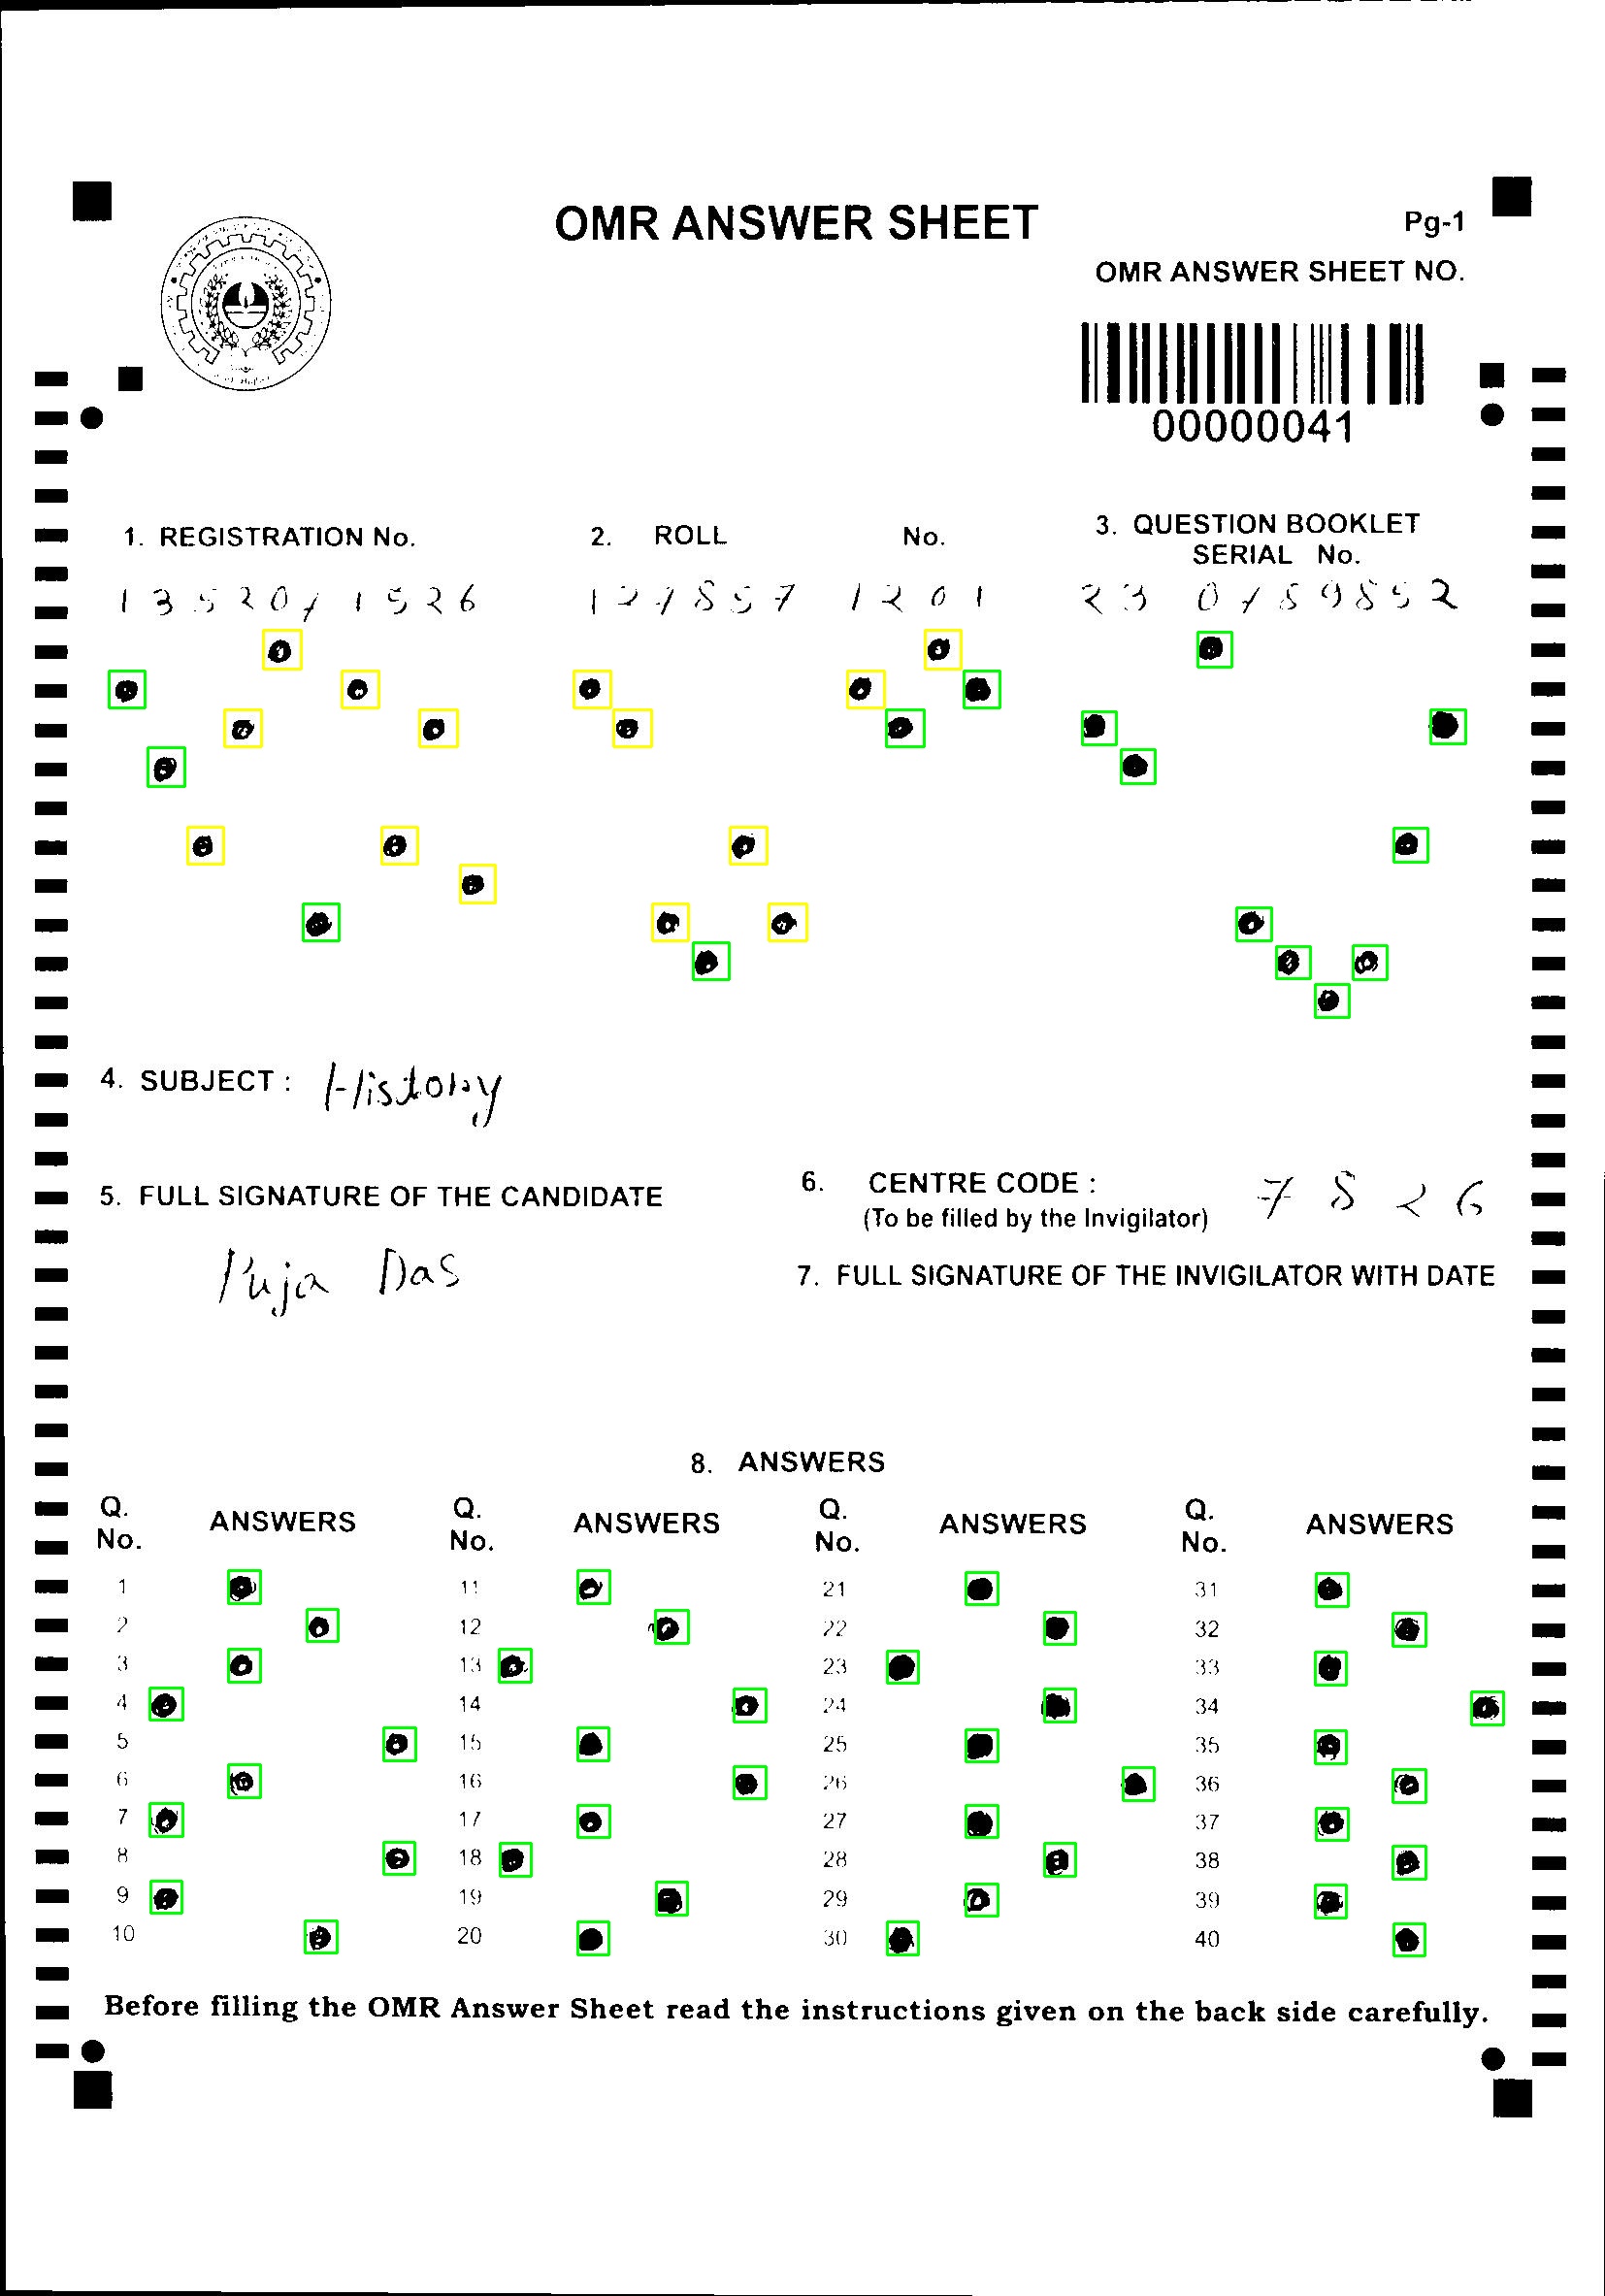 OMR ANSWER SHEET
Pg-1
OMR ANSWER SHEET NO.
00000041
1. REGISTRATION No.
2. ROLL No.
3. QUESTION BOOKLET
SERIAL No.
1352071526
127857 1201
23 0789852
4. SUBJECT : History
5. FULL SIGNATURE OF THE CANDIDATE
Puja Das
6. CENTRE CODE : 7826
(To be filled by the Invigilator)
7. FULL SIGNATURE OF THE INVIGILATOR WITH DATE
8. ANSWERS
Q. No. ANSWERS Q. No. ANSWERS Q. No. ANSWERS Q. No. ANSWERS
1 11 21 31
2 12 22 32
3 13 23 33
4 14 24 34
5 15 25 35
6 16 26 36
7 17 27 37
8 18 28 38
9 19 29 39
10 20 30 40
Before filling the OMR Answer Sheet read the instructions given on the back side carefully.